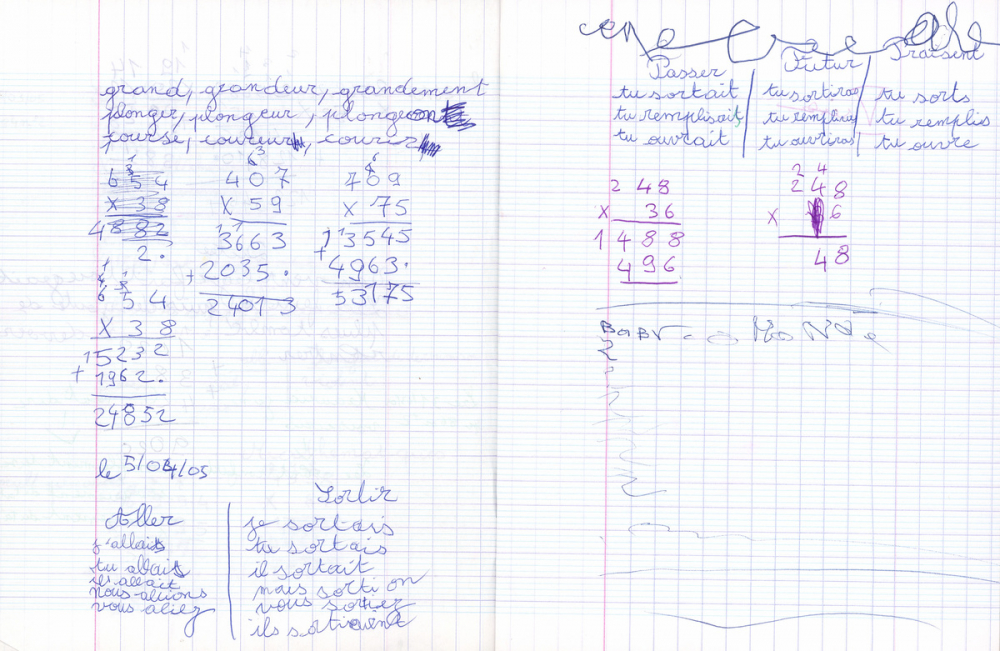 grand, grandeur, grandement
plonger, plongeur, plongeon
course, coureur, courir
1 3
654
X 38
4882
2.
654
X 38
15232
+ 1962.
24852
63
407
X 59
3663
+ 2035.
24013
6
709
X 75
13545
+ 4963.
53175
le 5/04/05
Aller
j'allais
tu allais
ils allait
nous allions
vous aliez
Sortir
je sortais
tu sortais
il sortait
nous sorti on
vous sortiez
ils sortiaient
Passer
tu sortait
tu remplisait
tu ouvrait
Futur
tu sortiras
tu rempliras
tu ouvriras
Praisent
tu sorts
tu remplis
tu ouvre
248
X 36
1488
496
2 4
248
X 6
48